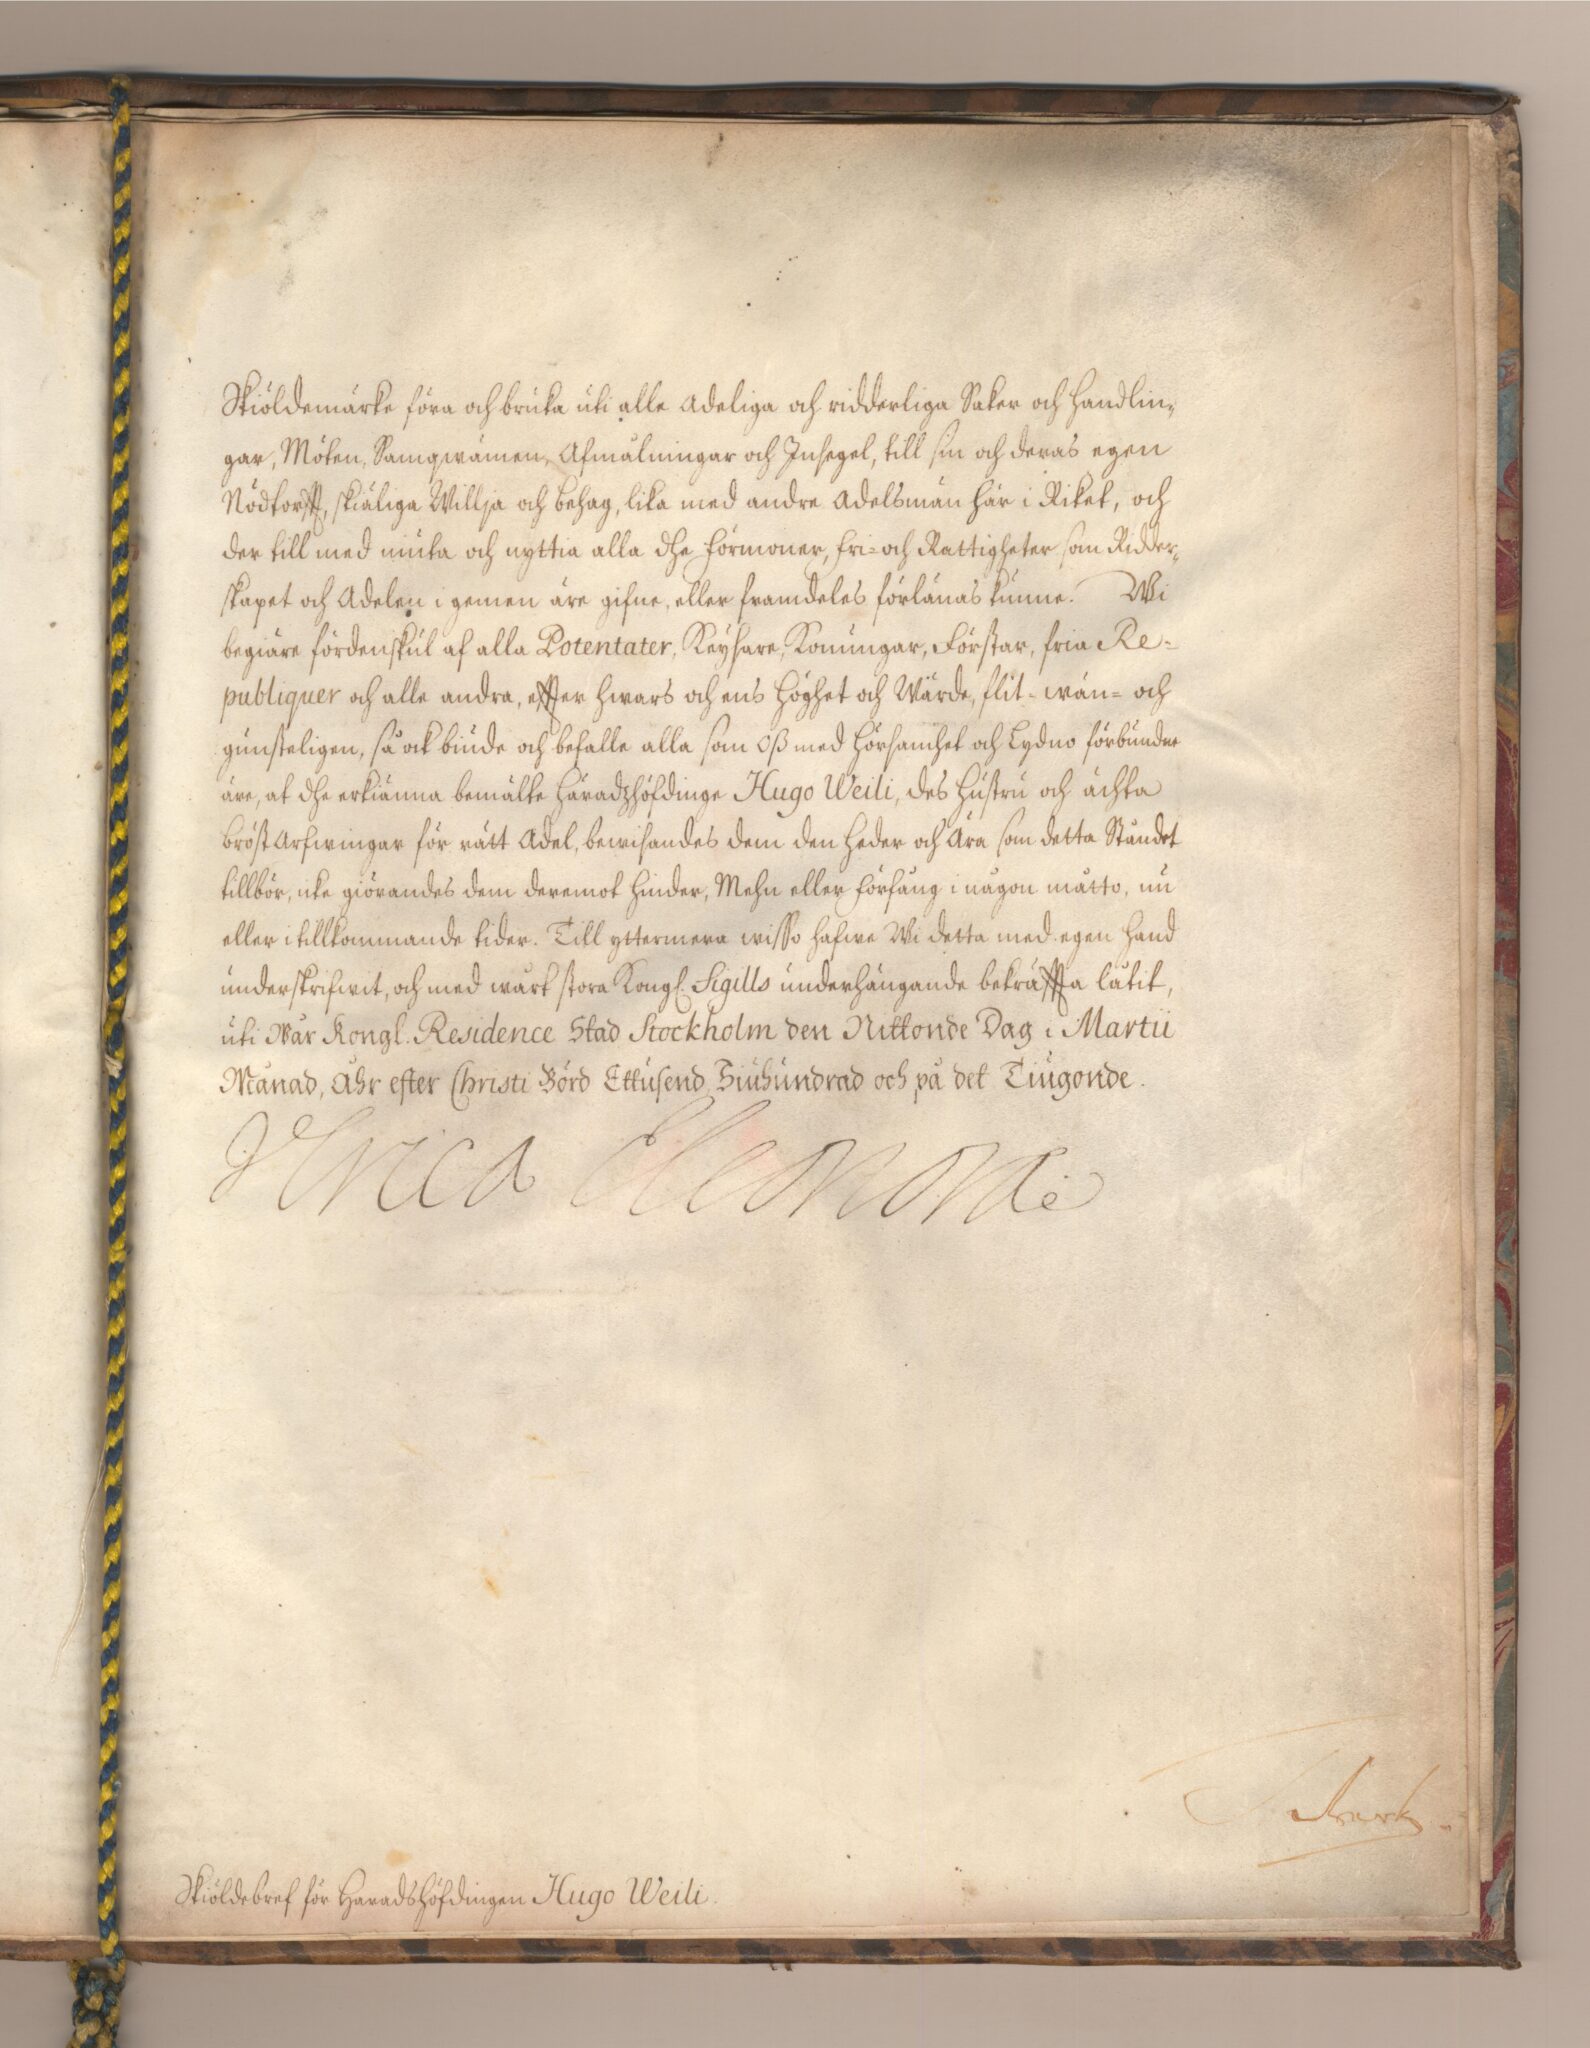 Skiöldemärke föra och bruka uti alle Adeliga och ridderliga Saker och Handlin-
gar, Möten, Samqwämen, Afmålningar och Insegel, till sin och deras egen
Nödtorfft, skiäliga Willja och behag, lika med andre Adelsmän här i Riket, och
der till med niuta och nyttia alla dhe Förmoner, Fri- och Rättigheter som Ridder-
skapet och Adelen i gemen äre gifne, eller framdeles förlänas kunne. Wi
begiäre fördenskul af alla Potentater, Keysare, Konungar, Förstar, fria Re-
publiquer och alle andra, effter hwars och ens Höghet och Wärde, flit- wän- och
gunsteligen, så ock biude och befalle alla som Oß med Hörsamhet och Lydno förbundne
äre, at dhe erkiänna bemälte Häradzhöfdinge Hugo Weili, des Hustru och ächta
Bröst Arfwingar för rätt Adel, bewisandes dem den Heder och Ära som detta Ståndet
tillbör, icke giörandes dem deremot Hinder, Mehn eller Förfång i någon måtto, nu
eller i tillkommande tider. Till yttermera wisso hafwe Wi detta med egen Hand
underskrifwit, och med wårt stora Kongl. Sigills underhängande bekräffta låtit,
uti Wår Kongl. Residence Stad Stockholm den Nittonde Dag i Martii
Månad, Åhr efter Christi Börd Ettusend Siuhundrad och på det Tiugonde.
Ulrica Eleonora
Skiöldebref för Häradshöfdingen Hugo Weili.